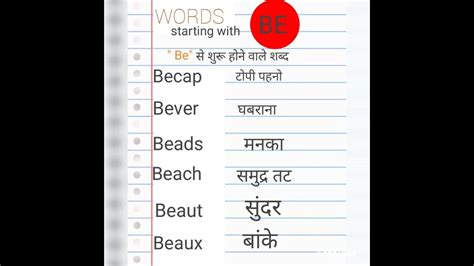 WORDS
starting with BE
" Be" से शुरू होने वाले शब्द
Becap टोपी पहनो
Bever घबराना
Beads मनका
Beach समुद्र तट
Beaut सुंदर
Beaux बांके